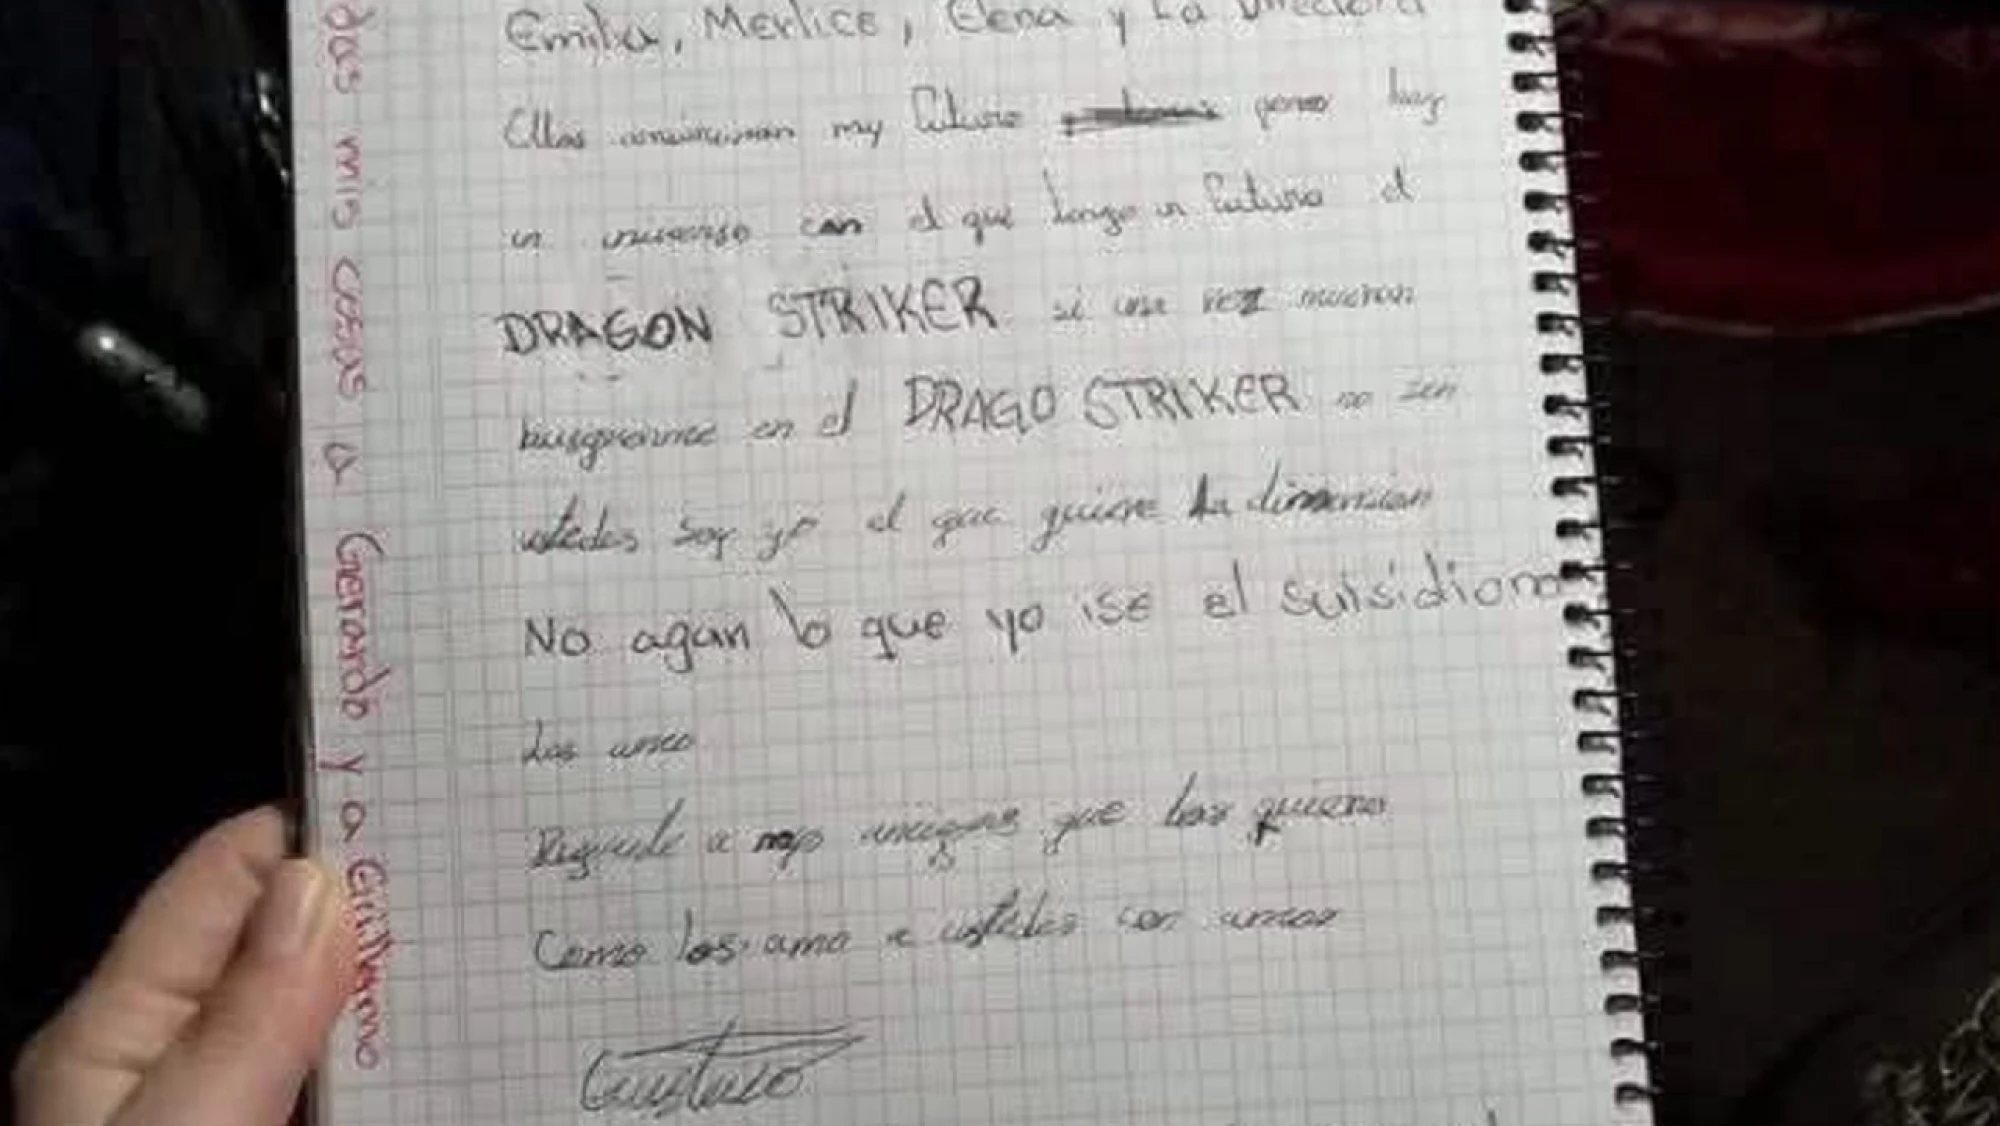 Emilia, Merlice, Elena y La Directora
Ellas arruinaron my futuro pero hay
un universo con el que tengo un futuro el
DRAGON STRIKER si una vez mueran
busquenme en el DRAGO STRIKER no sen
ustedes soy yo el que quiere la dimension
No agan lo que yo ise el suisidiono
Los amo
a mis amigos que los quiero
Como los amo a ustedes con amor
Gustavo
das mis cosas a Gerardo y a Guillermo